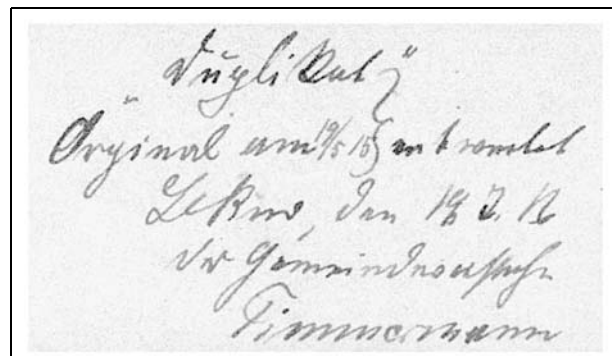 "Duplikat"
Original am 19/5 15 entwendet
Lekno, den 19. 2. 16
der Gemeindevorsteher
Timmermann